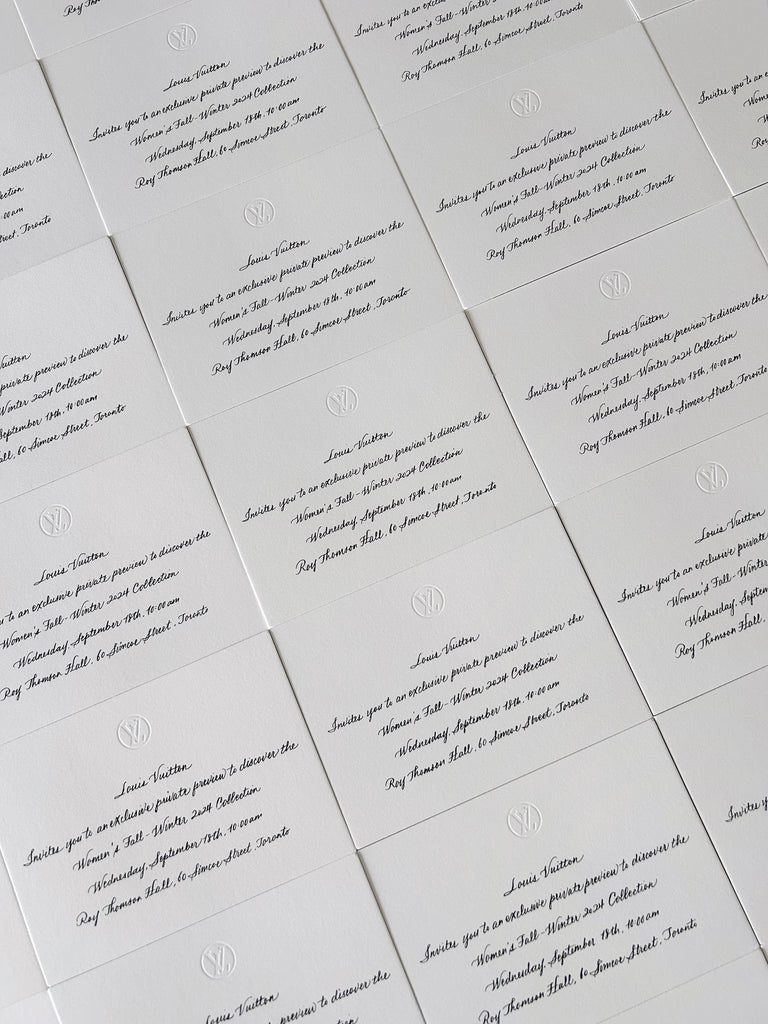 Roy
Invites you to an
Women's Fall-Winter 2024 Collection
Wednesday, September 18th, 10:00 am
Roy Thomson Hall, 60 Simcoe Street, Toronto
LV
Louis Vuitton
Invites you to an exclusive private preview to discover the
Women's Fall-Winter 2024 Collection
Wednesday, September 18th, 10:00 am
Roy Thomson Hall, 60 Simcoe Street, Toronto
LV
Louis Vuitton
Invites you to an exclusive private preview to discover the
Women's Fall-Winter 2024 Collection
Wednesday, September 18th, 10:00 am
Roy Thomson Hall, 60 Simcoe Street, Toronto
Invites you to an
discover the
00 am
Toronto
LV
Louis Vuitton
Invites you to an exclusive private preview to discover the
Women's Fall-Winter 2024 Collection
Wednesday, September 18th, 10:00 am
Roy Thomson Hall, 60 Simcoe Street, Toronto
LV
Louis Vuitton
Invites you to an exclusive private preview to discover the
Women's Fall-Winter 2024 Collection
Wednesday, September 18th, 10:00 am
Roy Thomson Hall, 60 Simcoe Street, Toronto
private preview to discover the
Winter 2024 Collection
September 18th, 10:00 am
60 Simcoe Street, Toronto
LV
Louis Vuitton
Invites you to an exclusive private preview to discover the
Women's Fall-Winter 2024 Collection
Wednesday, September 18th, 10:00 am
Roy Thomson Hall, 60 Simcoe Street, Toronto
LV
Louis Vuitton
Invites you to an exclusive private
Women's Fall-Winter
Wednesday,
Roy Thomson Hall,
LV
Louis Vuitton
to an exclusive private preview to discover the
Women's Fall-Winter 2024 Collection
Wednesday, September 18th, 10:00 am
Roy Thomson Hall, 60 Simcoe Street, Toronto
LV
Louis Vuitton
Invites you to an exclusive private preview to discover the
Women's Fall-Winter 2024 Collection
Wednesday, September 18th, 10:00 am
Roy Thomson Hall, 60 Simcoe Street, Toronto
LV
Louis Vuitton
Invites you to an exclusive private preview to discover the
Women's Fall-Winter 2024 Collection
Wednesday, September 18th, 10:00 am
Roy Thomson Hall, 60 Simcoe Street, Toronto
LV
Louis Vuitton
Invites you to an exclusive private preview to discover the
Women's Fall-Winter 2024 Collection
Wednesday, September 18th, 10:00 am
Roy Thomson Hall, 60 Simcoe Street, Toronto
Invites
LV
Louis Vuitton
exclusive private preview to discover the